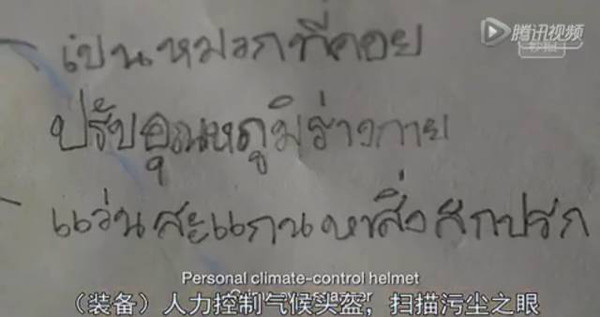 腾讯视频
- เปนหมวกที่คอย
ปรับอุณหภูมิร่างกาย
- แว่นสะแกนหาสิ่งสกปรก
Personal climate-control helmet
（装备）人力控制气候头盔，扫描污尘之眼